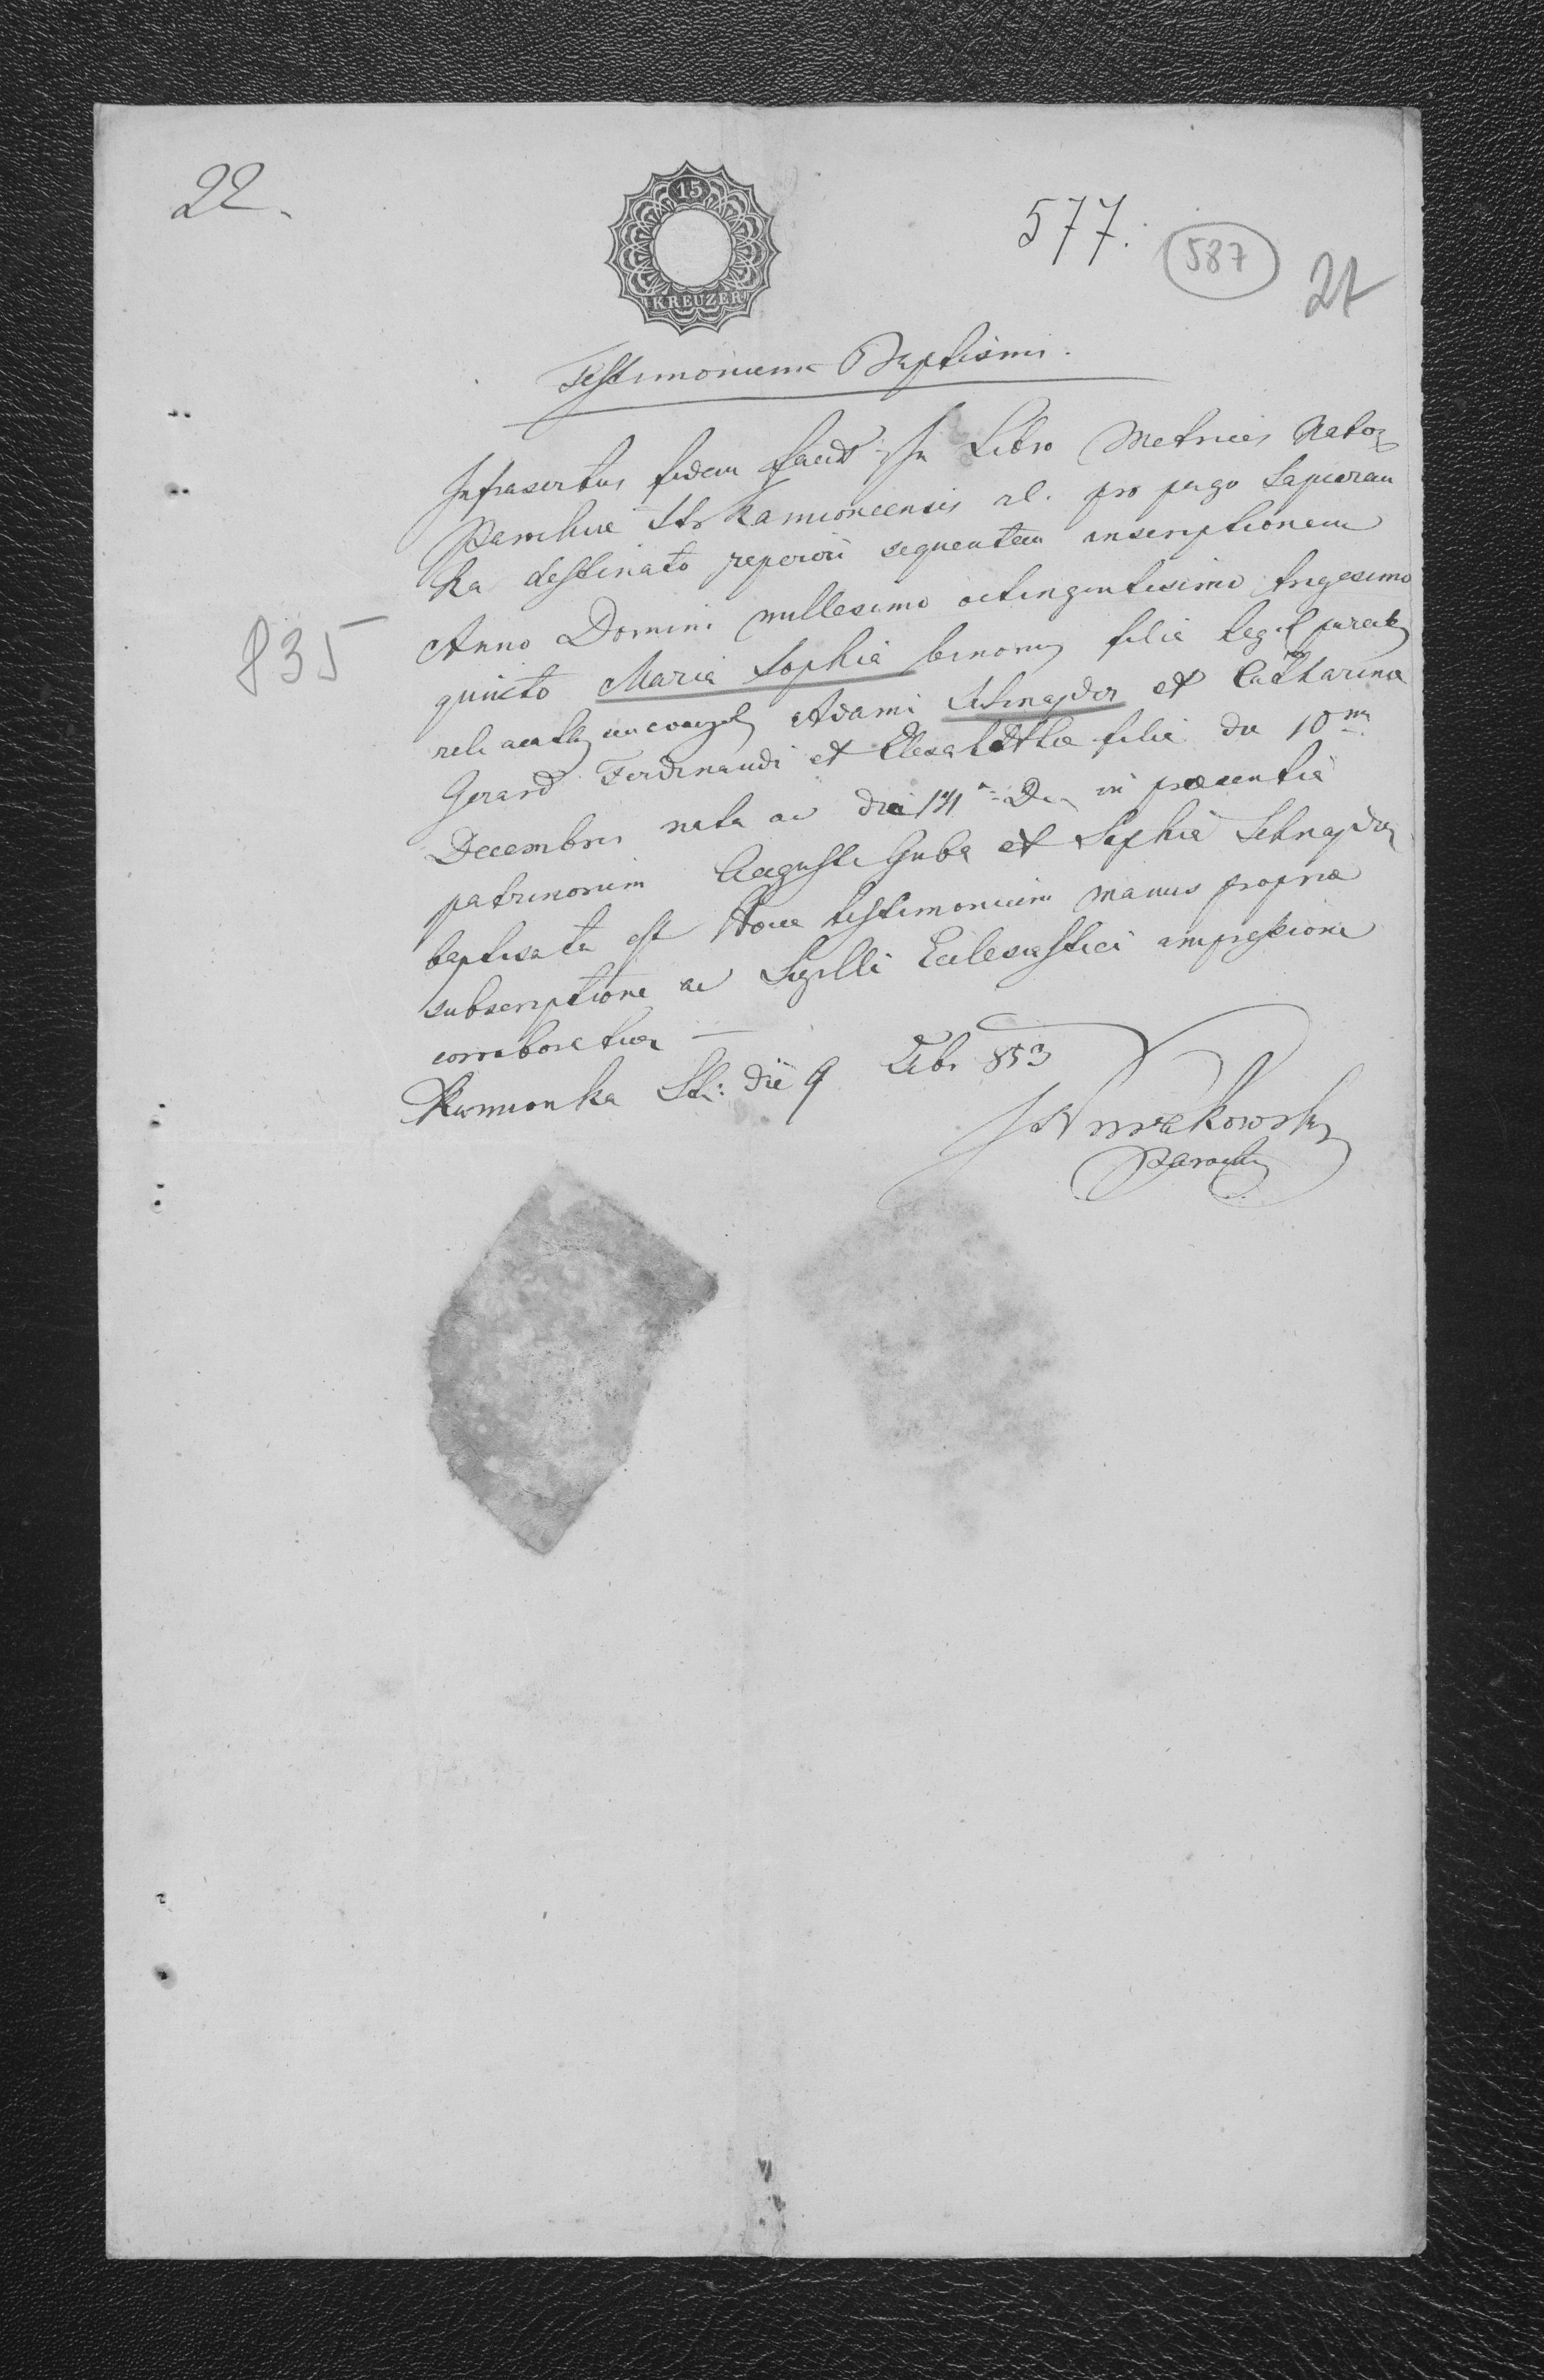 22.
15
KREUZER
577.
587
21
Testimonium Baptismi.
Infrascriptus fidem facit In Libro Metrices Nator
Parochiae Kamionceensis pro pago Lapieran
ka destinato reperiri sequentem inscriptionem
Anno Domini millesimo octingentesimo trigesimo
835
quinto Maria Sophia binomis filia legit parent
Adami Schnajder et Catharina
Gerard Ferdinandi et Elisabethae filia die 10ma
Decembris nata ac die in praesentia
patrinorum Auguste Guba et Sophia Schnajder
baptisata est testimonium manus propriae
subscriptione ac Sigilli Ecclesiastici impressione
corroboratur
Kamionka Str: die 9 853
Parochus